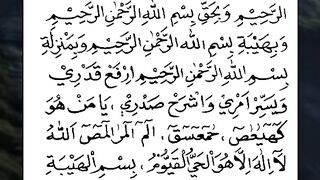 الرَّحِيْمِ وَبِحَقِّ بِسْمِ اللهِ الرَّحْمٰنِ الرَّحِيْمِ
وَبِهَيْبَةِ بِسْمِ اللهِ الرَّحْمٰنِ الرَّحِيْمِ وَبِمَنْزِلَةِ
بِسْمِ اللهِ الرَّحْمٰنِ الرَّحِيْمِ اِرْفَعْ قَدْرِيْ
وَيَسِّرْ اَمْرِيْ وَاشْرَحْ صَدْرِيْ ، يَا مَنْ هُوَ
كٓهٰيٰعٓصٓ ، حٰمٓعٓسٓقٓ ، الٓمٓ الٓمٓرٰ الٓمٓصٓ اَللهُ
لَآ اِلٰهَ اِلَّا هُوَ الْحَيُّ الْقَيُّوْمُ ، بِسِرِّ الْهَيْبَةِ